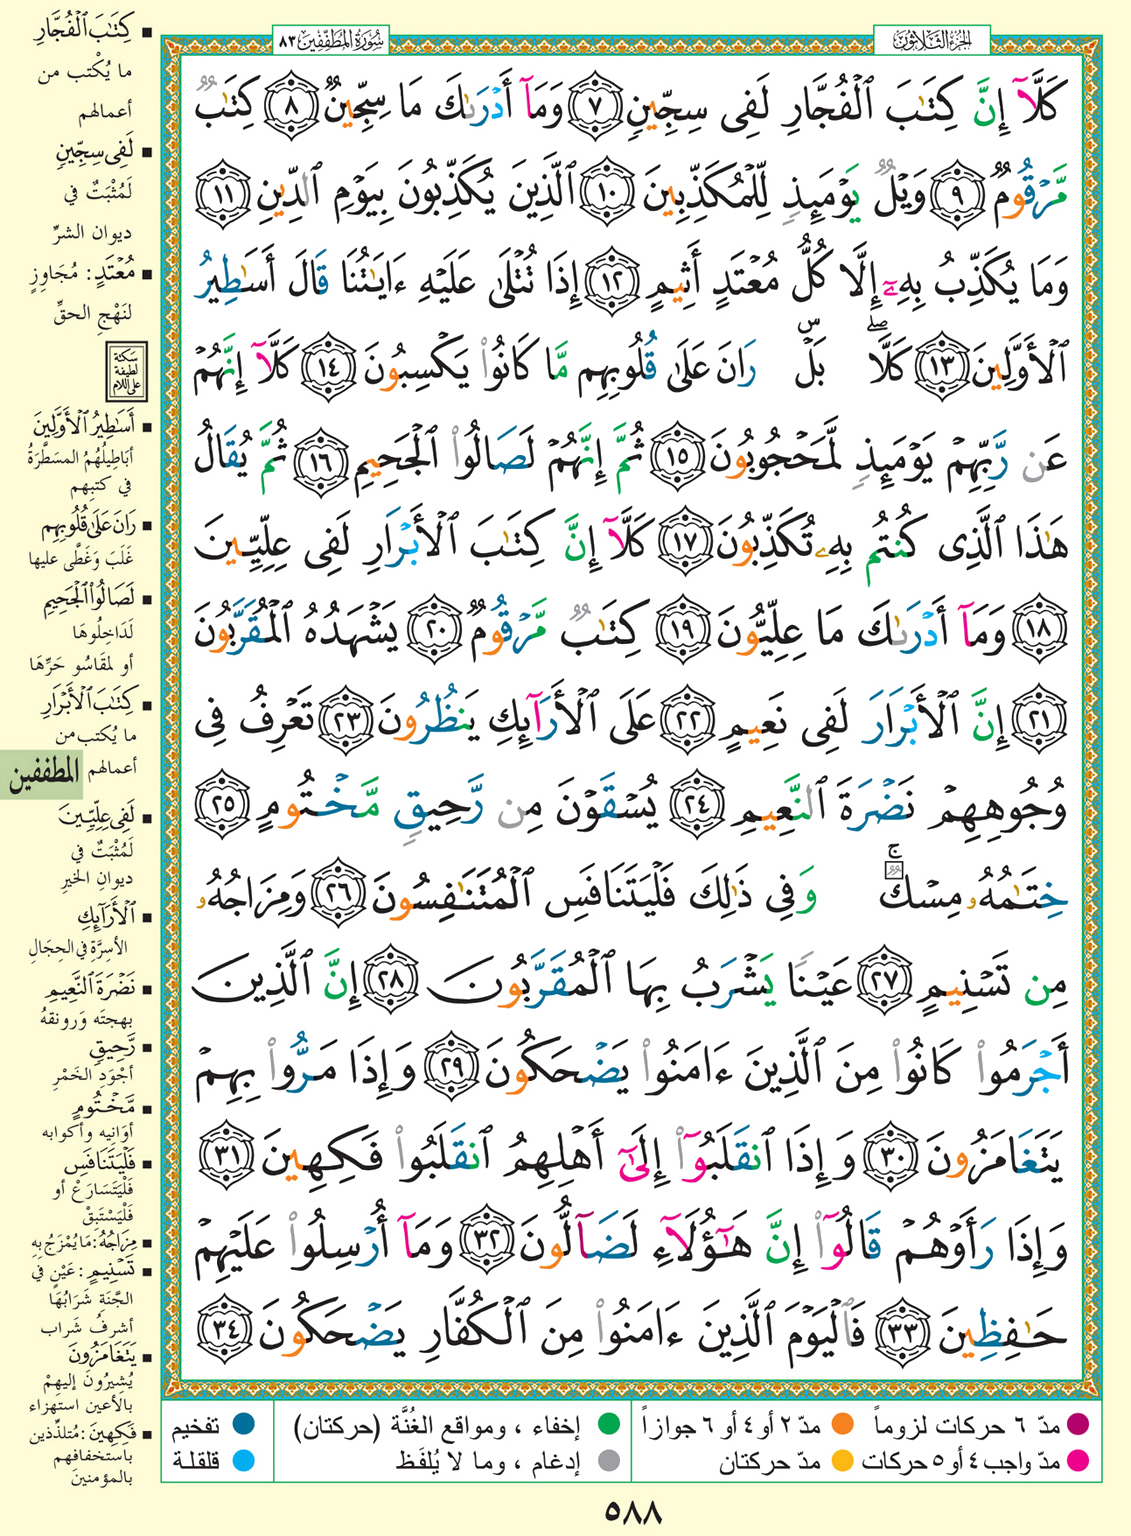 الجزء الثلاثون
سورة المطففين ٨٣
كَلَّآ إِنَّ كِتَٰبَ ٱلْفُجَّارِ لَفِى سِجِّينٍ ٧ وَمَآ أَدْرَىٰكَ مَا سِجِّينٌ ٨ كِتَٰبٌ
مَّرْقُومٌ ٩ وَيْلٌ يَوْمَئِذٍ لِّلْمُكَذِّبِينَ ١٠ ٱلَّذِينَ يُكَذِّبُونَ بِيَوْمِ ٱلدِّينِ ١١
وَمَا يُكَذِّبُ بِهِۦٓ إِلَّا كُلُّ مُعْتَدٍ أَثِيمٍ ١٢ إِذَا تُتْلَىٰ عَلَيْهِ ءَايَٰتُنَا قَالَ أَسَٰطِيرُ
ٱلْأَوَّلِينَ ١٣ كَلَّا ۖ بَلْ ۜ رَانَ عَلَىٰ قُلُوبِهِم مَّا كَانُوا۟ يَكْسِبُونَ ١٤ كَلَّآ إِنَّهُمْ
عَن رَّبِّهِمْ يَوْمَئِذٍ لَّمَحْجُوبُونَ ١٥ ثُمَّ إِنَّهُمْ لَصَالُوا۟ ٱلْجَحِيمِ ١٦ ثُمَّ يُقَالُ
هَٰذَا ٱلَّذِى كُنتُم بِهِۦ تُكَذِّبُونَ ١٧ كَلَّآ إِنَّ كِتَٰبَ ٱلْأَبْرَارِ لَفِى عِلِّيِّينَ
١٨ وَمَآ أَدْرَىٰكَ مَا عِلِّيُّونَ ١٩ كِتَٰبٌ مَّرْقُومٌ ٢٠ يَشْهَدُهُ ٱلْمُقَرَّبُونَ
٢١ إِنَّ ٱلْأَبْرَارَ لَفِى نَعِيمٍ ٢٢ عَلَى ٱلْأَرَآئِكِ يَنظُرُونَ ٢٣ تَعْرِفُ فِى
وُجُوهِهِمْ نَضْرَةَ ٱلنَّعِيمِ ٢٤ يُسْقَوْنَ مِن رَّحِيقٍ مَّخْتُومٍ ٢٥
خِتَٰمُهُۥ مِسْكٌ ۚ وَفِى ذَٰلِكَ فَلْيَتَنَافَسِ ٱلْمُتَنَٰفِسُونَ ٢٦ وَمِزَاجُهُۥ
مِن تَسْنِيمٍ ٢٧ عَيْنًا يَشْرَبُ بِهَا ٱلْمُقَرَّبُونَ ٢٨ إِنَّ ٱلَّذِينَ
أَجْرَمُوا۟ كَانُوا۟ مِنَ ٱلَّذِينَ ءَامَنُوا۟ يَضْحَكُونَ ٢٩ وَإِذَا مَرُّوا۟ بِهِمْ
يَتَغَامَزُونَ ٣٠ وَإِذَا ٱنقَلَبُوٓا۟ إِلَىٰٓ أَهْلِهِمُ ٱنقَلَبُوا۟ فَكِهِينَ ٣١
وَإِذَا رَأَوْهُمْ قَالُوٓا۟ إِنَّ هَٰٓؤُلَآءِ لَضَآلُّونَ ٣٢ وَمَآ أُرْسِلُوا۟ عَلَيْهِمْ
حَٰفِظِينَ ٣٣ فَٱلْيَوْمَ ٱلَّذِينَ ءَامَنُوا۟ مِنَ ٱلْكُفَّارِ يَضْحَكُونَ ٣٤
كِتَٰبَ ٱلْفُجَّارِ
ما يُكْتب من
أعمالهم
لَفِى سِجِّينٍ
لَمُثْبَتٌ في
ديوان الشرِّ
مُعْتَدٍ: مُجَاوِزٍ
لنَهْجِ الحقِّ
سكتة
لطيفة
على اللام
أَسَٰطِيرُ ٱلْأَوَّلِينَ
أبَاطِيلُهُمُ المسَطَّرَةُ
في كتبِهم
رَانَ عَلَىٰ قُلُوبِهِم
غَلَبَ وَغَطَّى عليها
لَصَالُوا۟ ٱلْجَحِيمِ
لَدَاخِلُوهَا
أو لمقَاسُو حَرِّهَا
كِتَٰبَ ٱلْأَبْرَارِ
ما يُكتب من
أعمالهم
المطففين
لَفِى عِلِّيِّينَ
لَمُثْبَتٌ في
ديوانِ الخيرِ
ٱلْأَرَآئِكِ
الأسِرَّةِ في الحِجَالِ
نَضْرَةَ ٱلنَّعِيمِ
بهجتَه وَرونقهُ
رَّحِيقٍ
أجْوَدِ الخَمْرِ
مَّخْتُومٍ
أوَانيه وأكوابه
فَلْيَتَنَافَسِ
فَلْيَتَسَارَعْ أو
فَلْيَسْتَبِقْ
مِزَاجُهُ: مَا يُمْزَجُ بِهِ
تَسْنِيمٍ: عَيْنٍ في
الجَّنَةِ شَرَابُهَا
أشرفُ شَراب
يَتَغَامَزُونَ
يُشيرُونَ إليهِمْ
بالأعين استهزاء
فَكِهِينَ: مُتلذِّذين
باستخفافهم
بالمؤمنينَ
مدّ ٦ حركات لزوماً
مدّ ٢ أو ٤ أو ٦ جوازاً
إخفاء ، ومواقع الغُنَّة (حركتان)
تفخيم
مدّ واجب ٤ أو ٥ حركات
مدّ حركتان
إدغام ، وما لا يُلفَظ
قلقلة
٥٨٨